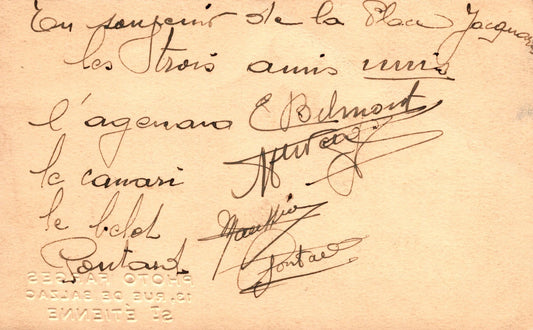 En souvenir de la Place Jacquard
les trois amis unis
l'agenara E Belmont
le canari
le belot
Pontard Pontard
PHOTO FARGES
13, RUE DE BALZAC
ST ETIENNE